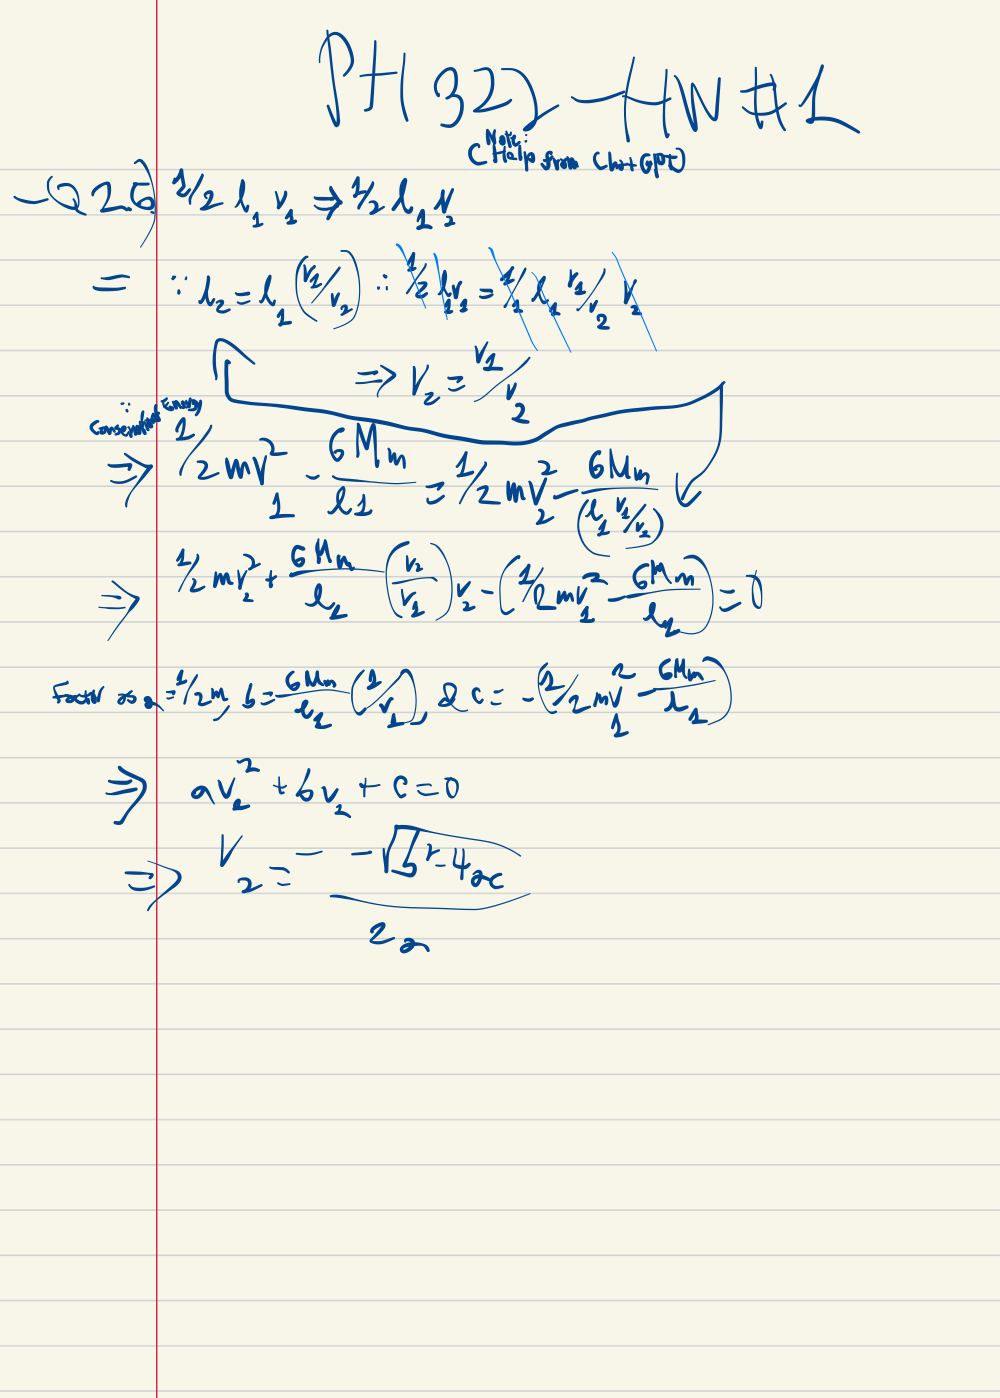 PH 322 - HW #1
(Note: Help from ChatGPT)
Q 25) 1/2 l₁ v₁ ⇒ 1/2 l₁ v₂
= ∵ l₂ = l₁ (v₁/v₂) ∴ 1/2 l₁ v₁ = 1/1 l₁ v₁/v₂ v₂
⇒ v₂ = v₁/v₂
∵ Conservation Energy
⇒ 1/2 mv₁² - GMm/l1 = 1/2 mv₂² - GMm/(l₁ v₁/v₂)
⇒ 1/2 mv₂² + GMm/l₂ (v₂/v₁) v₂ - (1/2 mv₁² - GMm/l₂) = 0
Factor as a = 1/2 m, b = GMm/l₂ (1/v₁), & c = -(1/2 mv₁² - GMm/l₁)
⇒ av₂² + bv₂ + c = 0
⇒ v₂ = - -√(b² - 4ac) / 2a